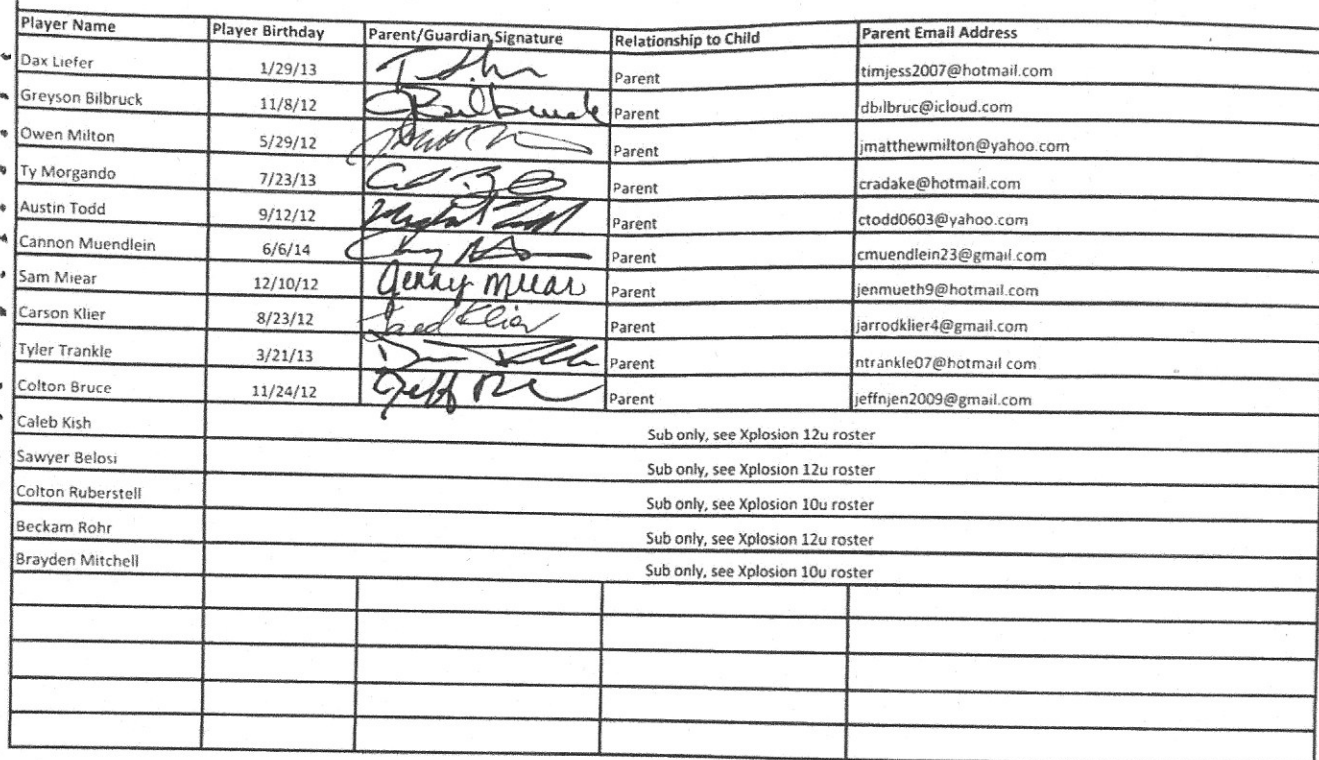 Player Name Player Birthday Parent/Guardian Signature Relationship to Child Parent Email Address
Dax Liefer 1/29/13 Parent timjess2007@hotmail.com
Greyson Bilbruck 11/8/12 Bilbruck Parent dbilbruc@icloud.com
Owen Milton 5/29/12 Parent jmatthewmilton@yahoo.com
Ty Morgando 7/23/13 Parent cradake@hotmail.com
Austin Todd 9/12/12 Parent ctodd0603@yahoo.com
Cannon Muendlein 6/6/14 Parent cmuendlein23@gmail.com
Sam Miear 12/10/12 Jenny Miear Parent jenmueth9@hotmail.com
Carson Klier 8/23/12 Klier Parent jarrodklier4@gmail.com
Tyler Trankle 3/21/13 Parent ntrankle07@hotmail com
Colton Bruce 11/24/12 Jeff Parent jeffnjen2009@gmail.com
Caleb Kish Sub only, see Xplosion 12u roster
Sawyer Belosi Sub only, see Xplosion 12u roster
Colton Ruberstell Sub only, see Xplosion 10u roster
Beckam Rohr Sub only, see Xplosion 12u roster
Brayden Mitchell Sub only, see Xplosion 10u roster